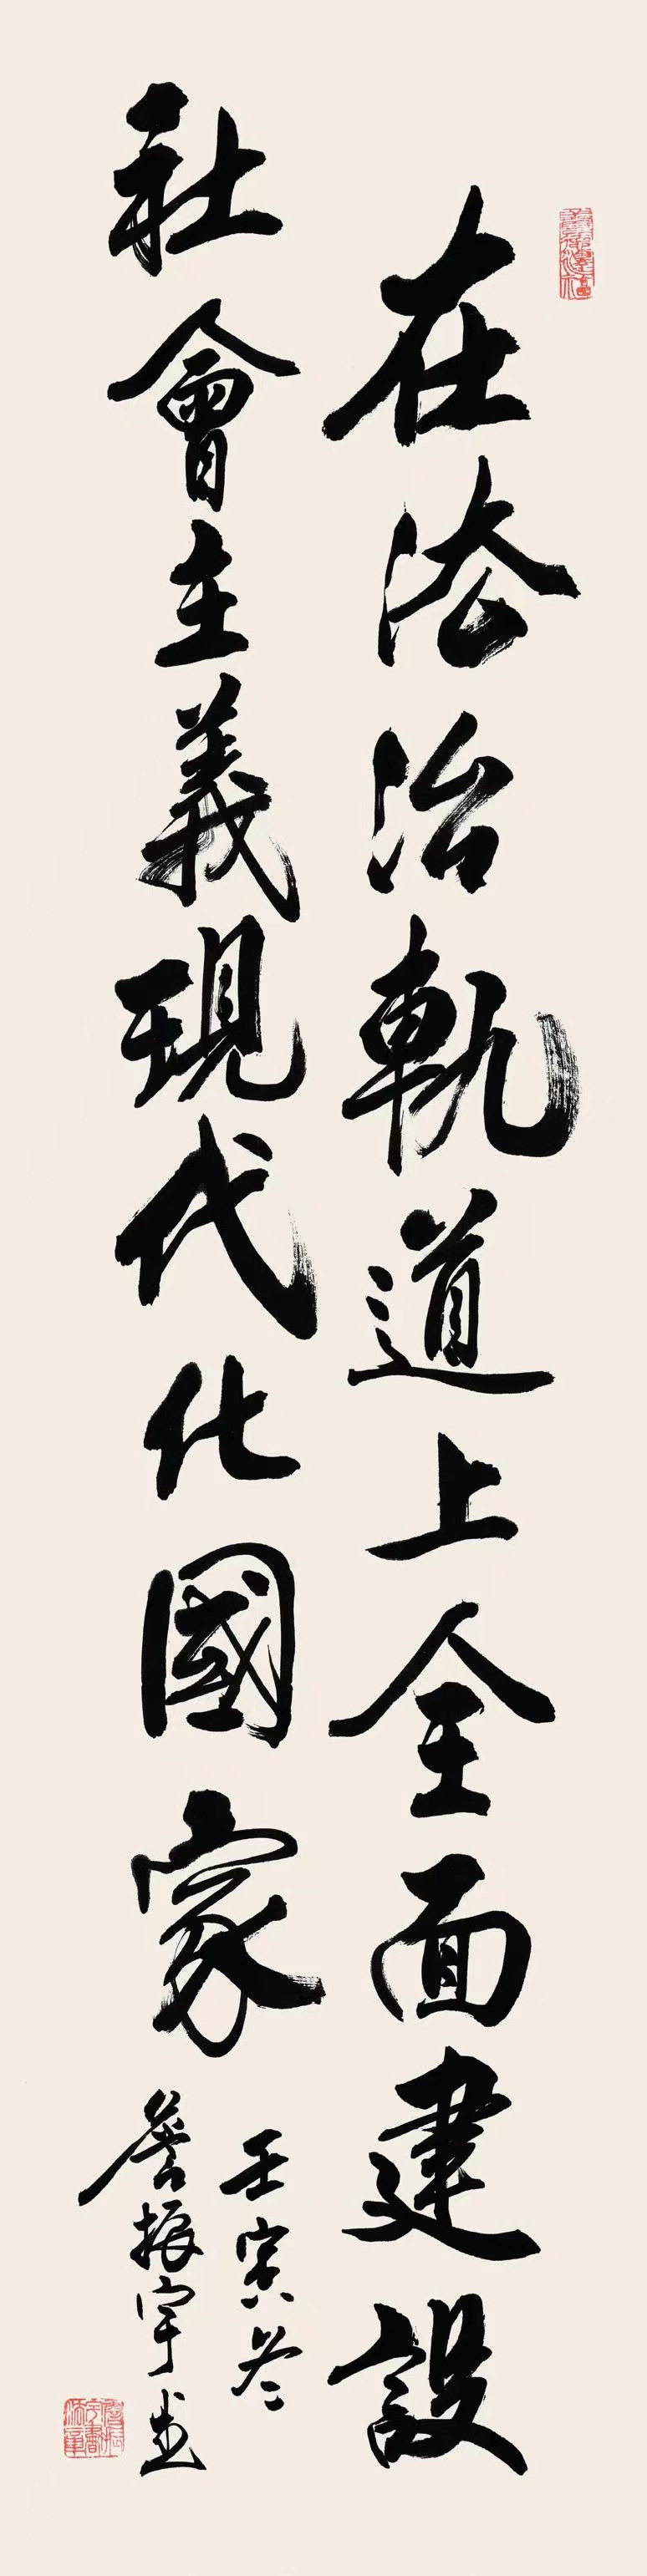 在法治軌道上全面建設
社會主義現代化國家
壬寅冬
詹振宇書